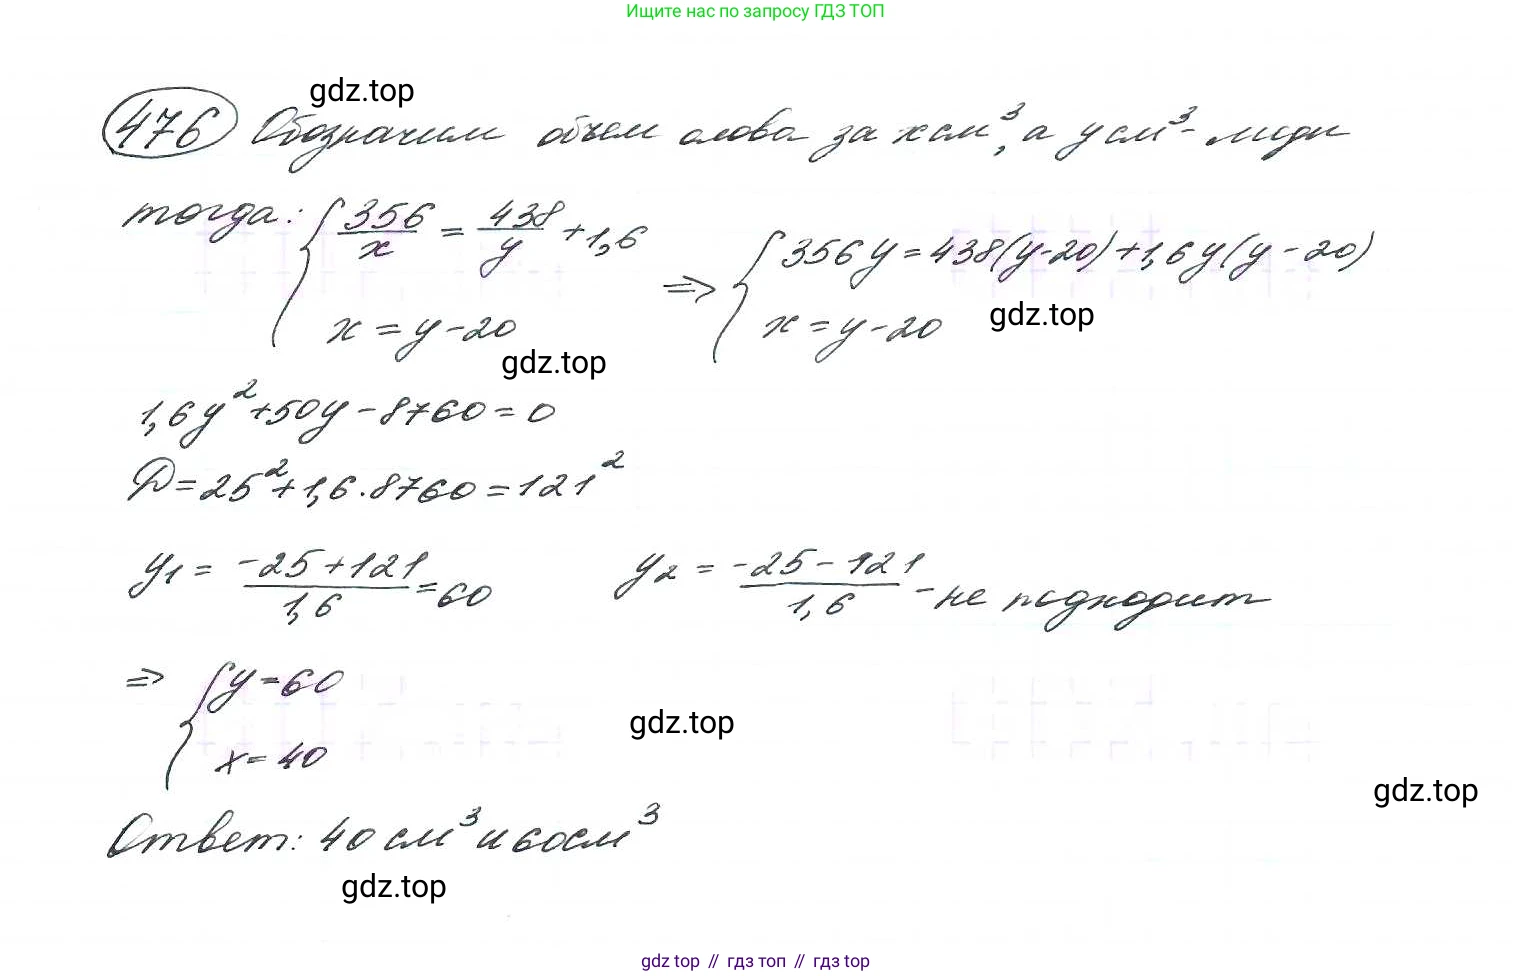 Ищите нас по запросу ГДЗ ТОП
gdz.top
476 Обозначим объем олова за x см³, а y см³ - меди
тогда: { 356/x = 438/y + 1,6
x = y - 20
=> { 356y = 438(y-20) + 1,6y(y - 20)
x = y - 20
gdz.top
gdz.top
1,6y² + 50y - 8760 = 0
D = 25² + 1,6 . 8760 = 121²
y₁ = (-25 + 121)/1,6 = 60 y₂ = (-25 - 121)/1,6 - не подходит
=> { y = 60
x = 40
gdz.top
gdz.top
Ответ: 40 см³ и 60 см³
gdz.top
gdz top // гдз топ // гдз top